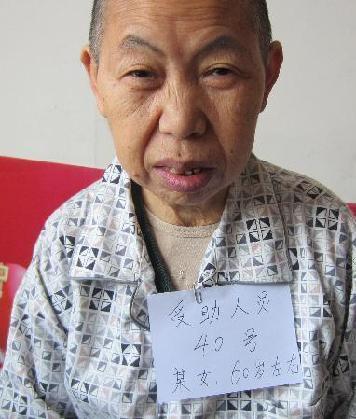 受助人员
40号
某女，60岁左右